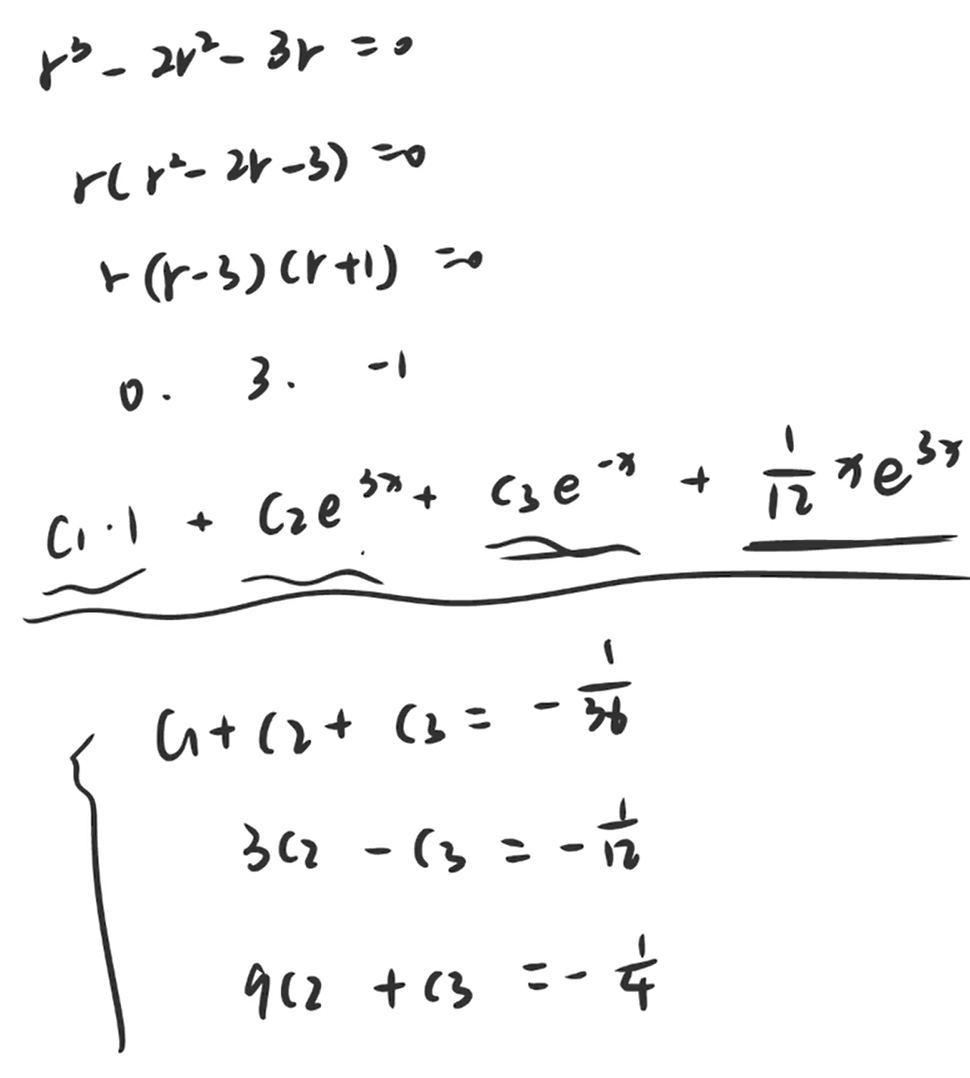 r³ - 2r² - 3r = 0
r(r² - 2r - 3) = 0
r(r-3)(r+1) = 0
0. 3. -1
C₁·1 + C₂e³ˣ + C₃e⁻ˣ + 1/12 xe³ˣ
C₁ + C₂ + C₃ = - 1/36
3C₂ - C₃ = - 1/12
9C₂ + C₃ = - 1/4